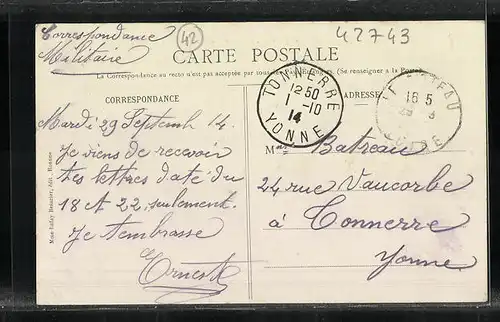 Correspondance
Militaire
42
42743
CARTE POSTALE
La Correspondance au recto n'est pas acceptée par tous les Pays Etrangers (Se renseigner à la Poste)
CORRESPONDANCE
ADRESSE
TONNERRE
12 50
1 -10
14
YONNE
16 5
Mardi 29 Septemb 14.
Je viens de recevoir
tes lettres daté du
18 et 22 seulement.
Je t'embrasse
Ernest
Mme Batreau
24 rue Vaucorbe
à Tonnerre
Yonne